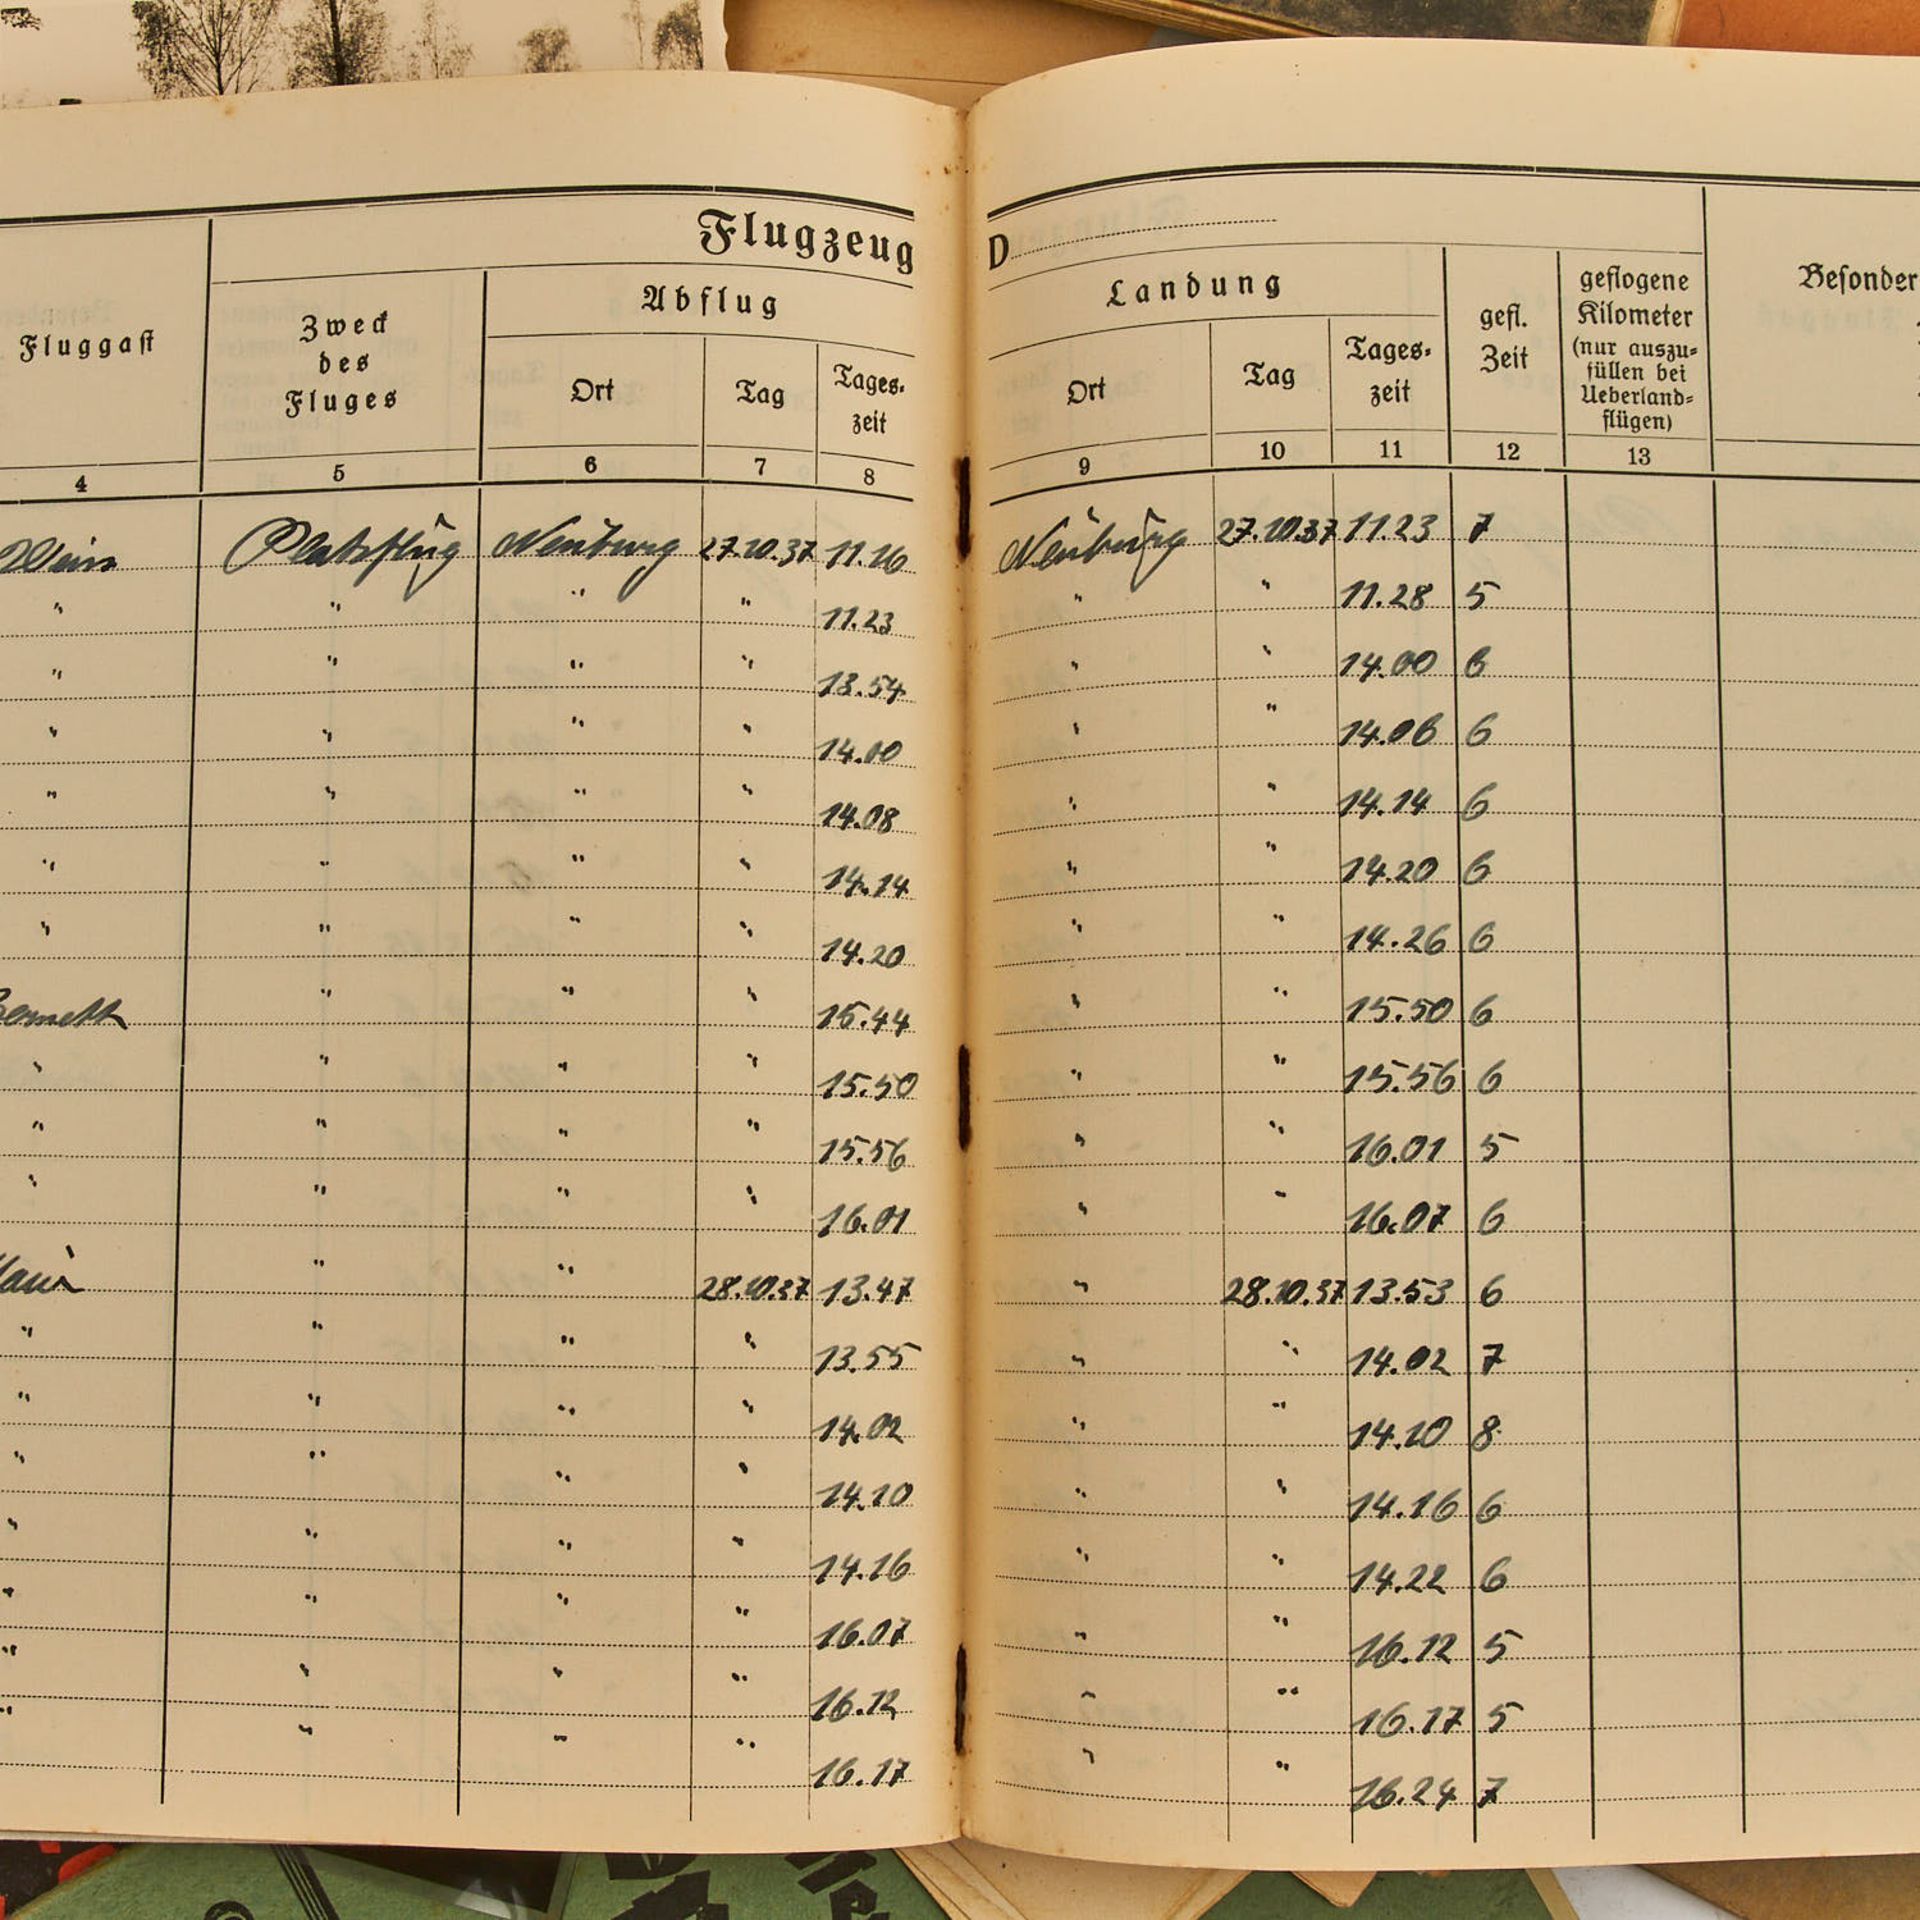 Flugzeug D
Fluggast | Zweck des Fluges | Abflug | Landung | gefl. Zeit | geflogene Kilometer (nur auszu=füllen bei Ueberland=flügen) | Besonder
Ort | Tag | Tages=zeit | Ort | Tag | Tages=zeit
4 | 5 | 6 | 7 | 8 | 9 | 10 | 11 | 12 | 13
Platzflug | Neuburg | 27.10.37 | 11.16 | Neuburg | 27.10.37 | 11.23 | 7
" | " | " | " | 11.23 | " | " | 11.28 | 5
" | " | " | " | 13.54 | " | " | 14.00 | 6
" | " | " | " | 14.00 | " | " | 14.06 | 6
" | " | " | " | 14.08 | " | " | 14.14 | 6
" | " | " | " | 14.14 | " | " | 14.20 | 6
" | " | " | " | 14.20 | " | " | 14.26 | 6
" | " | " | 15.44 | " | " | 15.50 | 6
" | " | " | " | 15.50 | " | " | 15.56 | 6
" | " | " | " | 15.56 | " | " | 16.01 | 5
" | " | " | " | 16.01 | " | " | 16.07 | 6
" | " | 28.10.37 | 13.47 | " | 28.10.37 | 13.53 | 6
" | " | " | " | 13.55 | " | " | 14.02 | 7
" | " | " | " | 14.02 | " | " | 14.10 | 8
" | " | " | " | 14.10 | " | " | 14.16 | 6
" | " | " | " | 14.16 | " | " | 14.22 | 6
" | " | " | " | 16.07 | " | " | 16.12 | 5
" | " | " | " | 16.12 | " | " | 16.17 | 5
" | " | " | " | 16.17 | " | " | 16.24 | 7